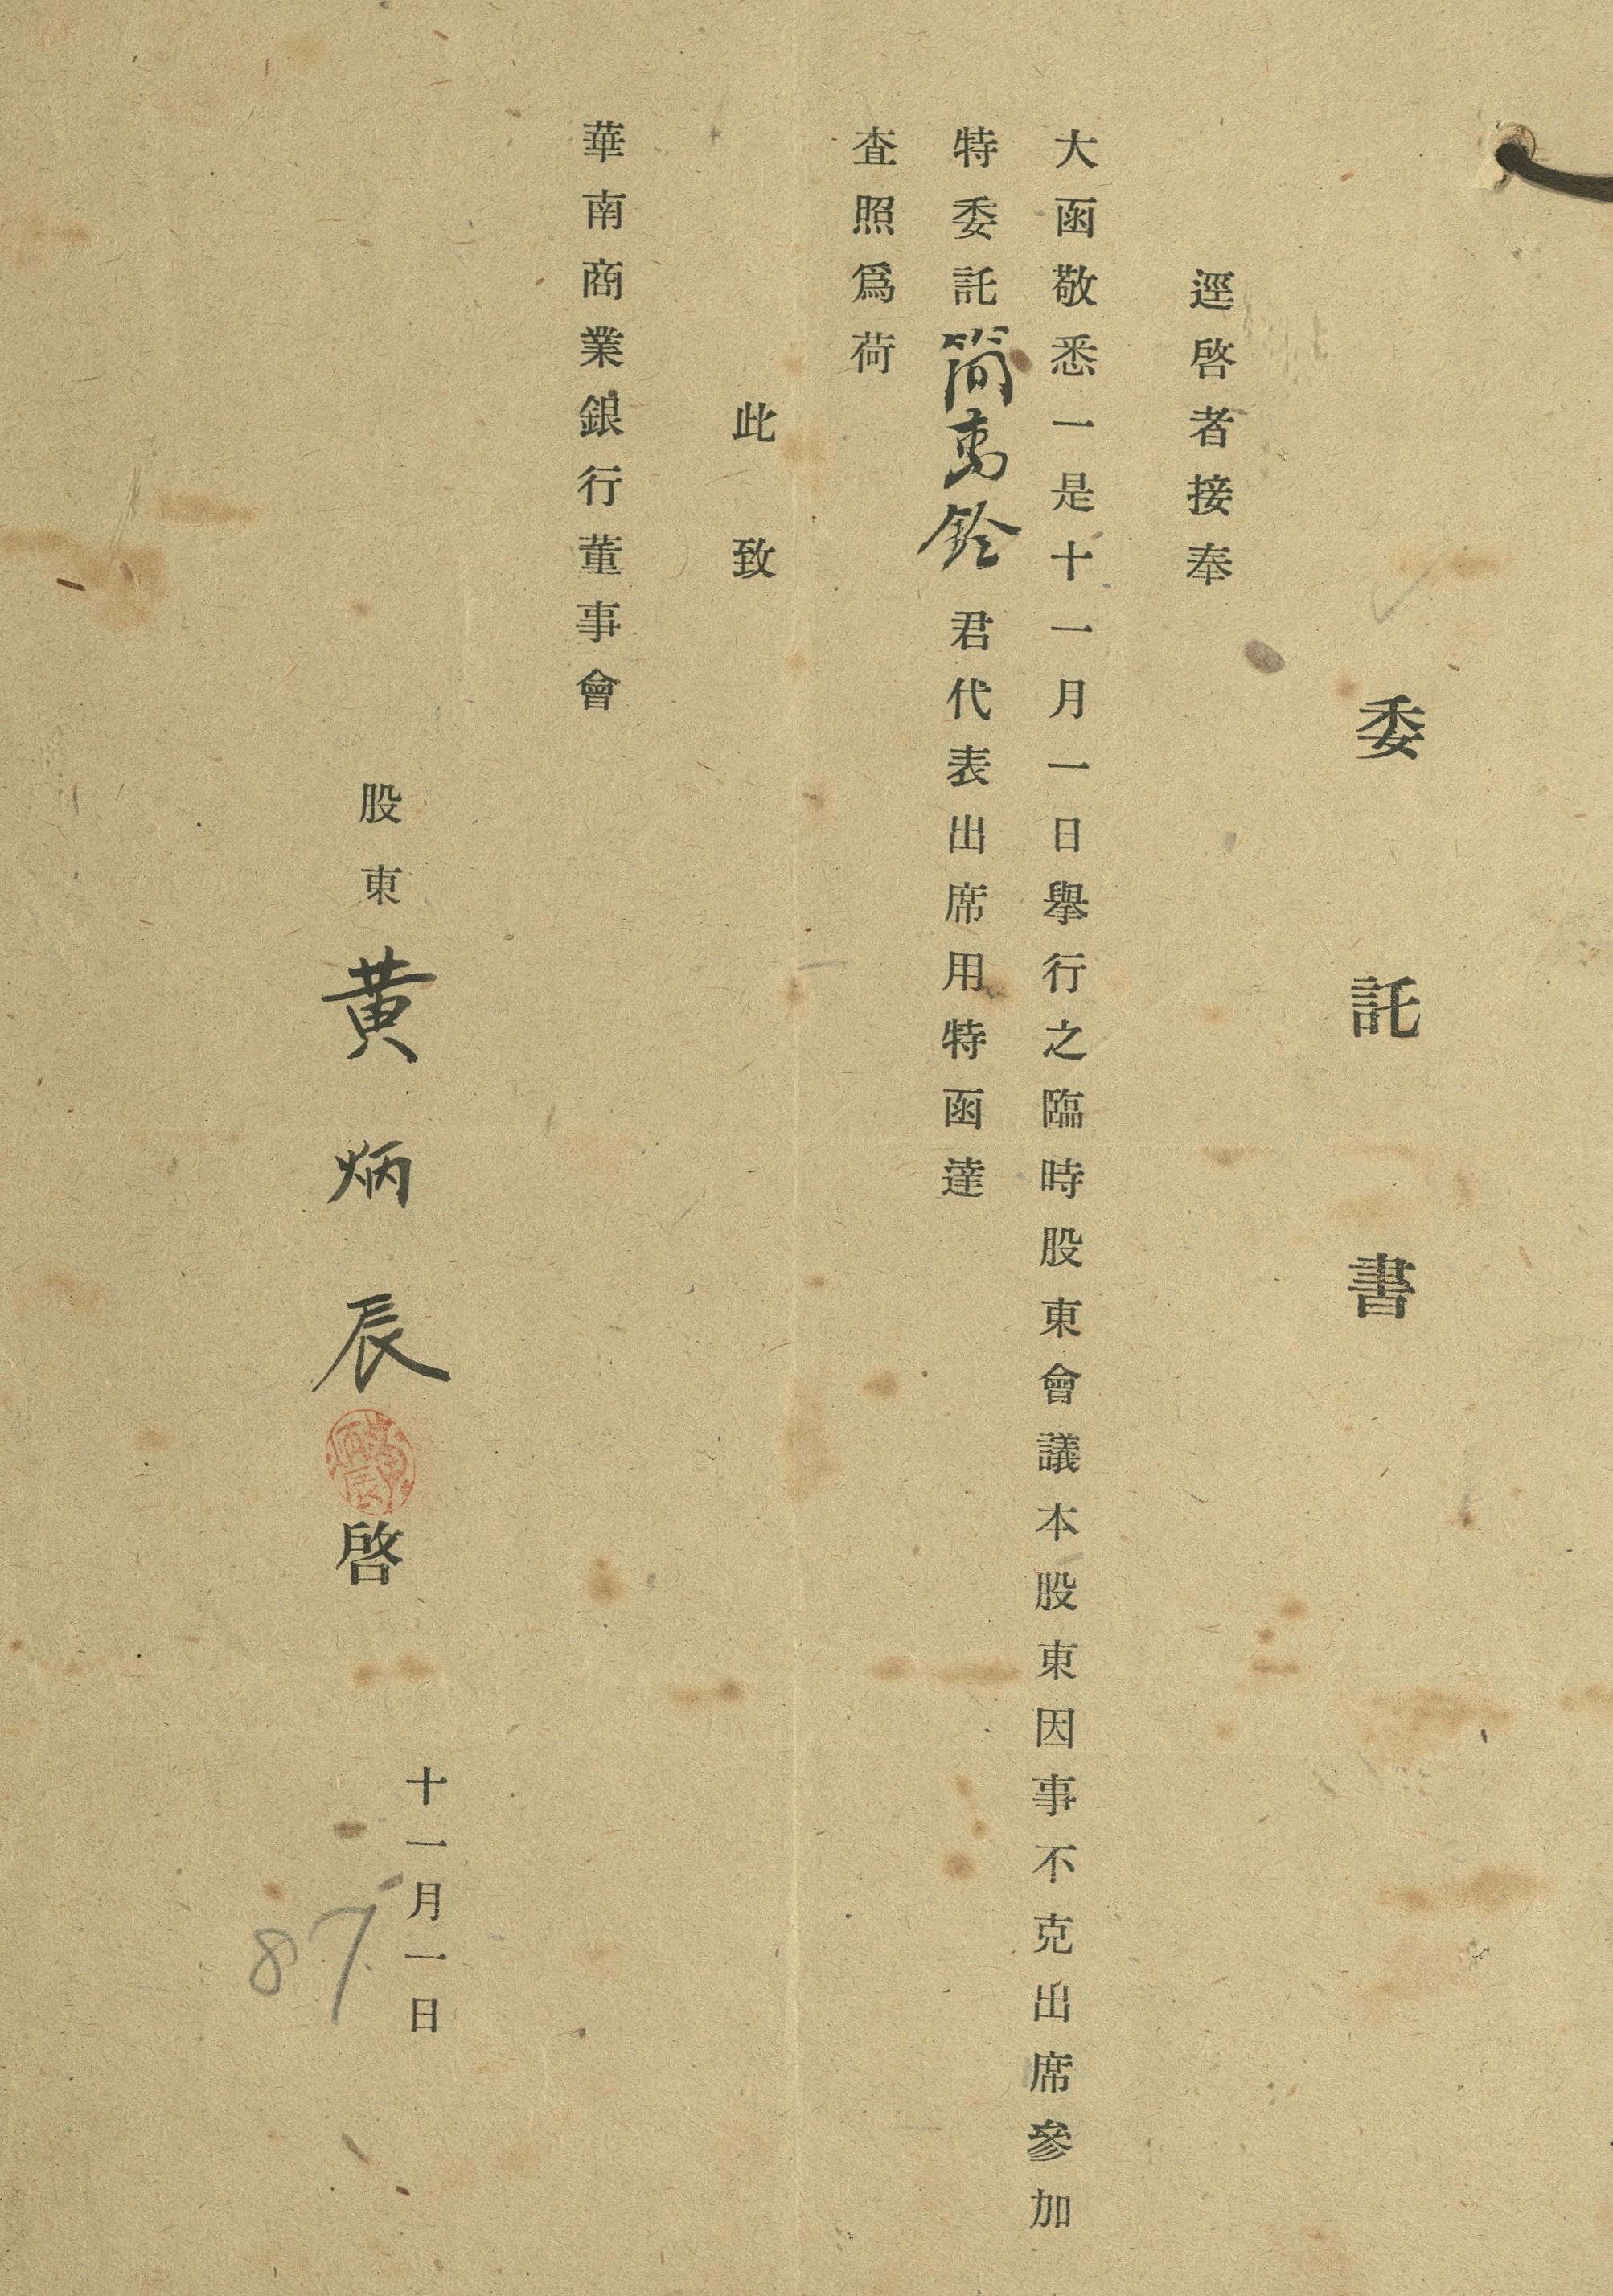 委託書
逕啓者接奉
大函敬悉一是十一月一日舉行之臨時股東會議本股東因事不克出席參加
特委託簡萬銓君代表出席用特函達
査照爲荷
此致
華南商業銀行董事會
十一月一日
股東黃炳辰啓
黃炳辰
87